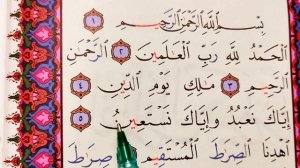 بِسْمِ ٱللَّهِ ٱلرَّحْمَـٰنِ ٱلرَّحِيمِ ١
ٱلْحَمْدُ لِلَّهِ رَبِّ ٱلْعَـٰلَمِينَ ٢ ٱلرَّحْمَـٰنِ
ٱلرَّحِيمِ ٣ مَـٰلِكِ يَوْمِ ٱلدِّينِ ٤
إِيَّاكَ نَعْبُدُ وَإِيَّاكَ نَسْتَعِينُ ٥
ٱهْدِنَا ٱلصِّرَٰطَ ٱلْمُسْتَقِيمَ ٦ صِرَٰطَ